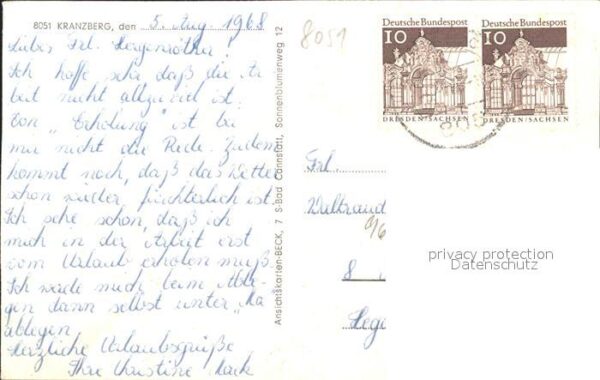 8051 KRANZBERG, den 5. Aug. 1968
Liebes Frl. Hergenröther!
Ich hoffe sehr daß die Ar
beit nicht allzuviel ist.
Von "Erholung" ist bei
mir nicht die Rede. Zudem
kommt noch, daß das Wetter
schon wieder fürchterlich ist.
Ich sehe schon, daß ich
mich in der Arbeit erst
vom Urlaub erholen muß.
Ich werde mich beim Able-
gen dann selbst unter "Ma
ablegen
Herzliche Urlaubsgrüße
Ihre Christine
Ansichtskarten-BECK, 7 S-Bad Cannstatt, Sonnenblumenweg 12
8051
Deutsche Bundespost
10
DRESDEN/SACHSEN
Deutsche Bundespost
10
DRESDEN/SACHSEN
Frl.
Waltraud
8
privacy protection
Datenschutz